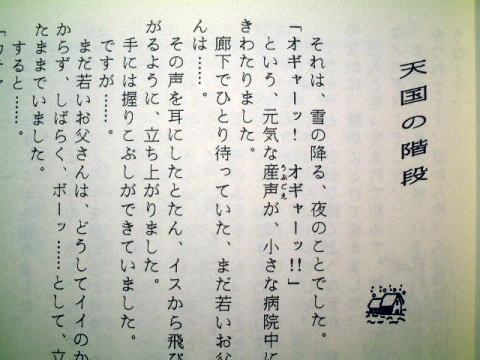 天国の階段
それは、雪の降る、夜のことでした。
「オギャーッ!　オギャーッ!!」
という、元気な産声が、小さな病院中に
きわたりました。
廊下でひとり待っていた、まだ若いお父
んは……。
その声を耳にしたとたん、イスから飛び
がるように、立ち上がりました。
手には握りこぶしができていました。
ですが……。
まだ若いお父さんは、どうしてイイのか
からず、しばらく、ボーッ……として、立
たままでいました。
すると……。